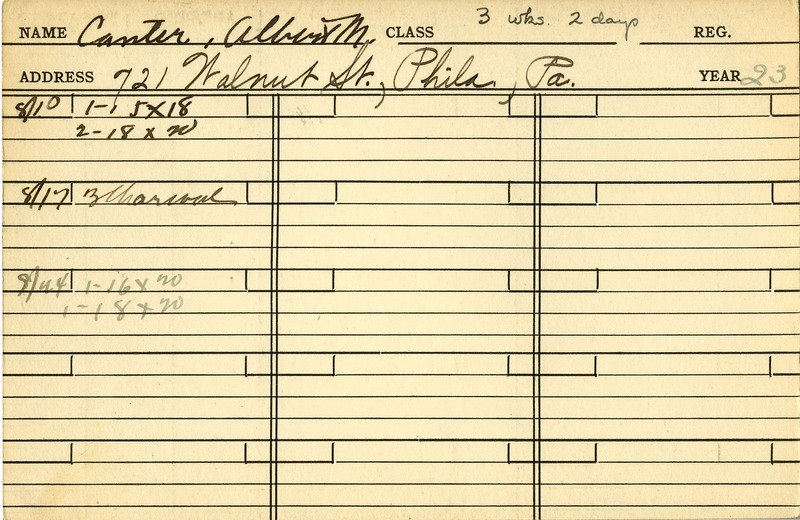 NAME Canter, Albert M. CLASS 3 wks. 2 days REG.
ADDRESS 721 Walnut St., Phila., Pa. YEAR 23
8/10 1-15x18
2-18 x 20
8/17 3 Charcoal
8/24 1-16x20
1-18x20